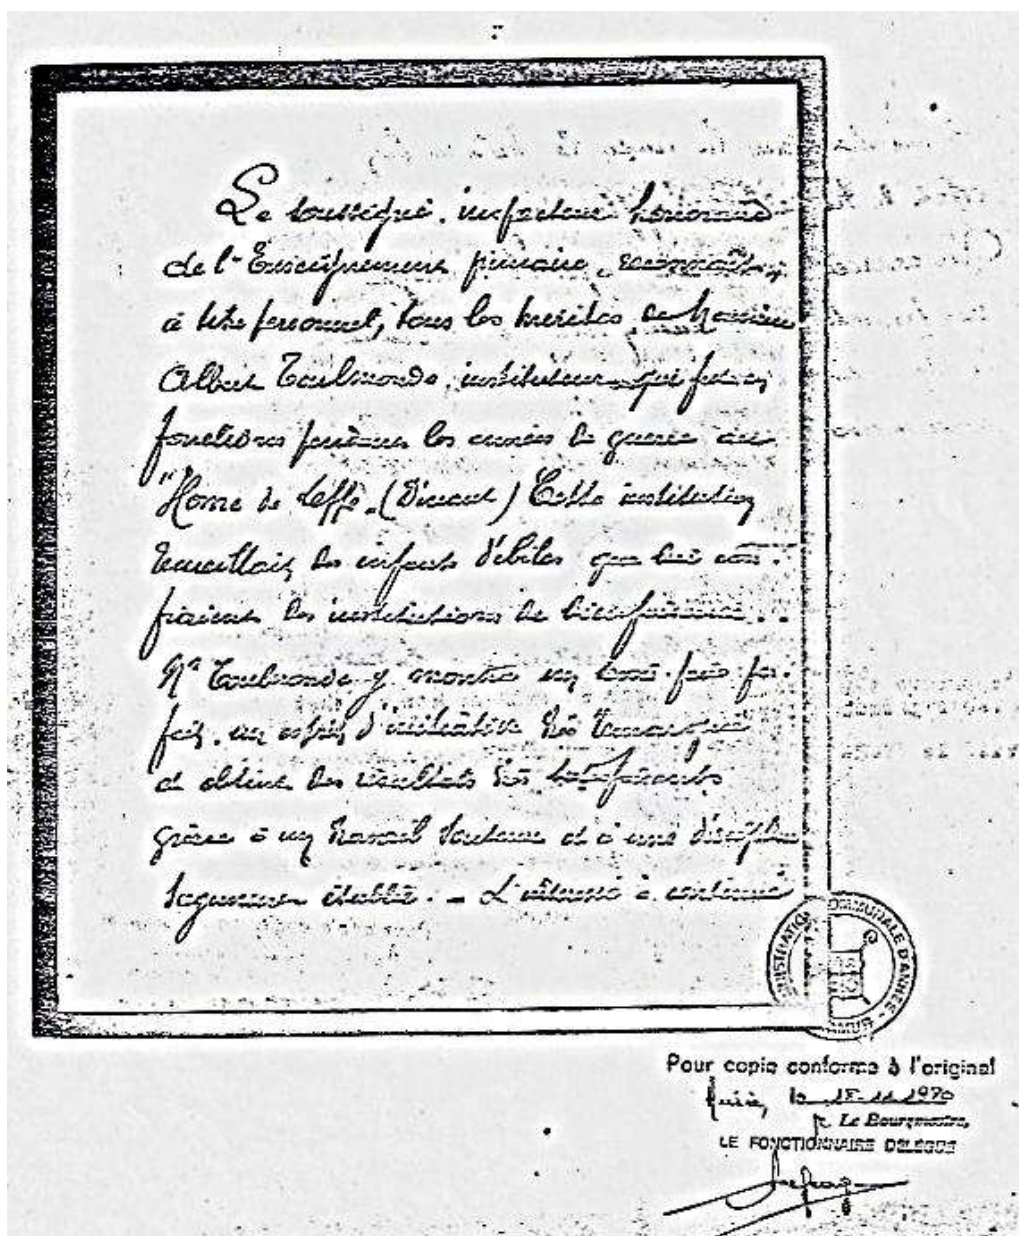 Le soussigné, inspecteur honoraire
de l'Enseignement primaire, reconnaît
à titre personnel, tous les mérites de Monsieur
Albert Toulmonde, instituteur qui fut en
fonctions pendant les années de guerre au
"Home de Leffe" (Dinant) Cette institution
recueillait des enfants débiles que lui con-
fiaient des institutions de bienfaisance.
Mr Toulmonde y montra un savoir-faire par-
fait, un esprit d'initiative très remarqué
et obtint des résultats très satisfaisants
grâce à un travail soutenu et à une discipline
sagement établie. - L'aisance a
ADMINISTRATION COMMUNALE D'ANHÉE - NAMUR
Pour copie conforme à l'original
le 18-11-1970
Le Bourgmestre,
LE FONCTIONNAIRE DÉLÉGUÉ